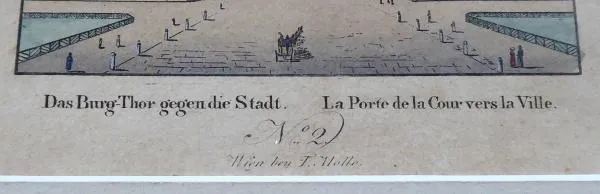 Das Burg-Thor gegen die Stadt. La Porte de la Cour vers la Ville.
No. 2
Wien bey T. Mollo.